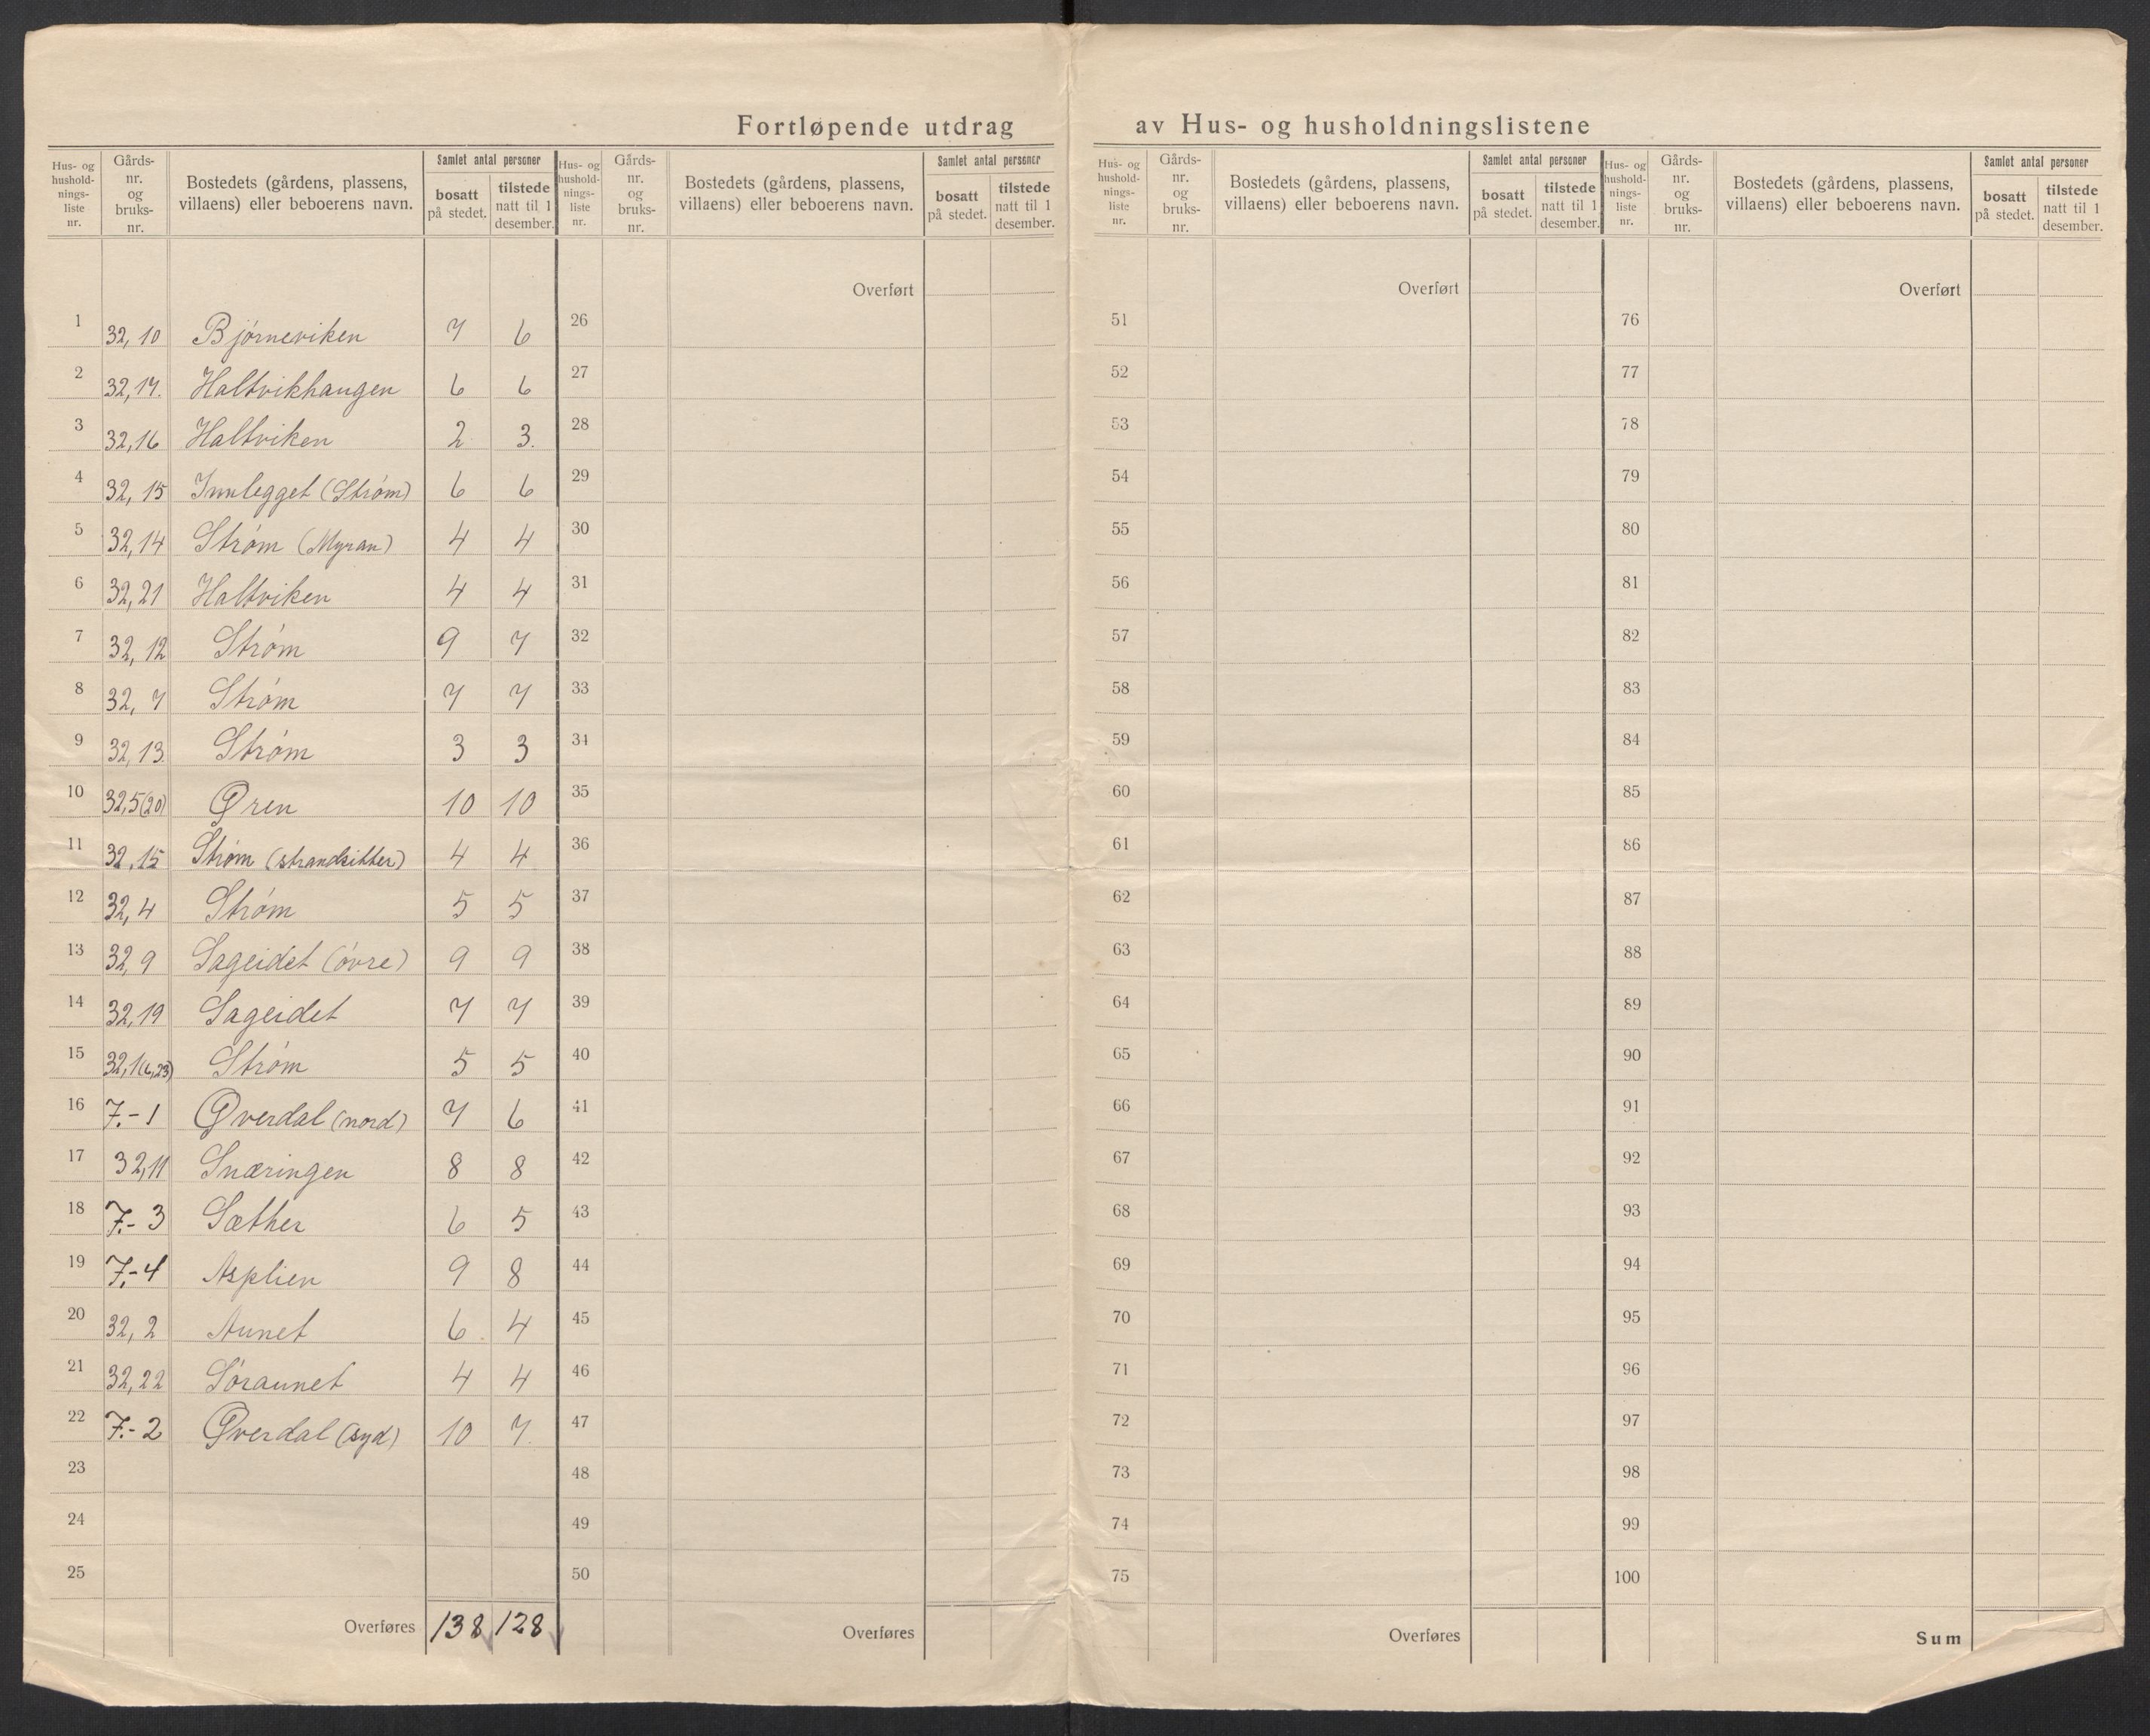 Fortløpende utdrag av Hus- og husholdningslistene
Hus- og hushold-nings-liste nr. | Gårds-nr. og bruks-nr. | Bostedets (gårdens, plassens, villaens) eller beboerens navn. | Samlet antal personer | bosatt på stedet. | tilstede natt til 1 desember.
Hus- og hushold-nings-liste nr. | Gårds-nr. og bruks-nr. | Bostedets (gårdens, plassens, villaens) eller beboerens navn. | Samlet antal personer | bosatt på stedet. | tilstede natt til 1 desember.
Hus- og hushold-nings-liste nr. | Gårds-nr. og bruks-nr. | Bostedets (gårdens, plassens, villaens) eller beboerens navn. | Samlet antal personer | bosatt på stedet. | tilstede natt til 1 desember.
Hus- og hushold-nings-liste nr. | Gårds-nr. og bruks-nr. | Bostedets (gårdens, plassens, villaens) eller beboerens navn. | Samlet antal personer | bosatt på stedet. | tilstede natt til 1 desember.
Overført Overført Overført
1 32, 10 Bjørneviken 7 6 26 51 76
2 32, 17. Haltvikhaugen 6 6 27 52 77
3 32, 16 Haltviken 2 3. 28 53 78
4 32, 15 Innlegget (Strøm) 6 6 29 54 79
5 32, 14 Strøm (Myran) 4 4 30 55 80
6 32, 21 Haltviken 4 4 31 56 81
7 32, 12 Strøm 9 7 32 57 82
8 32, 7 Strøm 7 7 33 58 83
9 32, 13. Strøm 3 3 34 59 84
10 32,5(20) Øren 10 10 35 60 85
11 32, 15 Strøm (strandsitter) 4 4 36 61 86
12 32, 4 Strøm 5 5 37 62 87
13 32, 9 Sageidet (øvre) 9 9 38 63 88
14 32, 19 Sageidet 7 7 39 64 89
15 32,1(6,23) Strøm 5 5 40 65 90
16 7.- 1 Øverdal (nord) 7 6 41 66 91
17 32,11 Snæringen 8 8 42 67 92
18 7.- 3 Sæther 6 5 43 68 93
19 7.- 4 Asplien 9 8 44 69 94
20 32, 2 Aunet 6. 4 45 70 95
21 32, 22 Søraunet 4 4 46 71 96
22 7.- 2 Øverdal (syd) 10 7. 47 72 97
23 48 73 98
24 49 74 99
25 50 75 100
Overføres 138 128 Overføres Overføres Sum